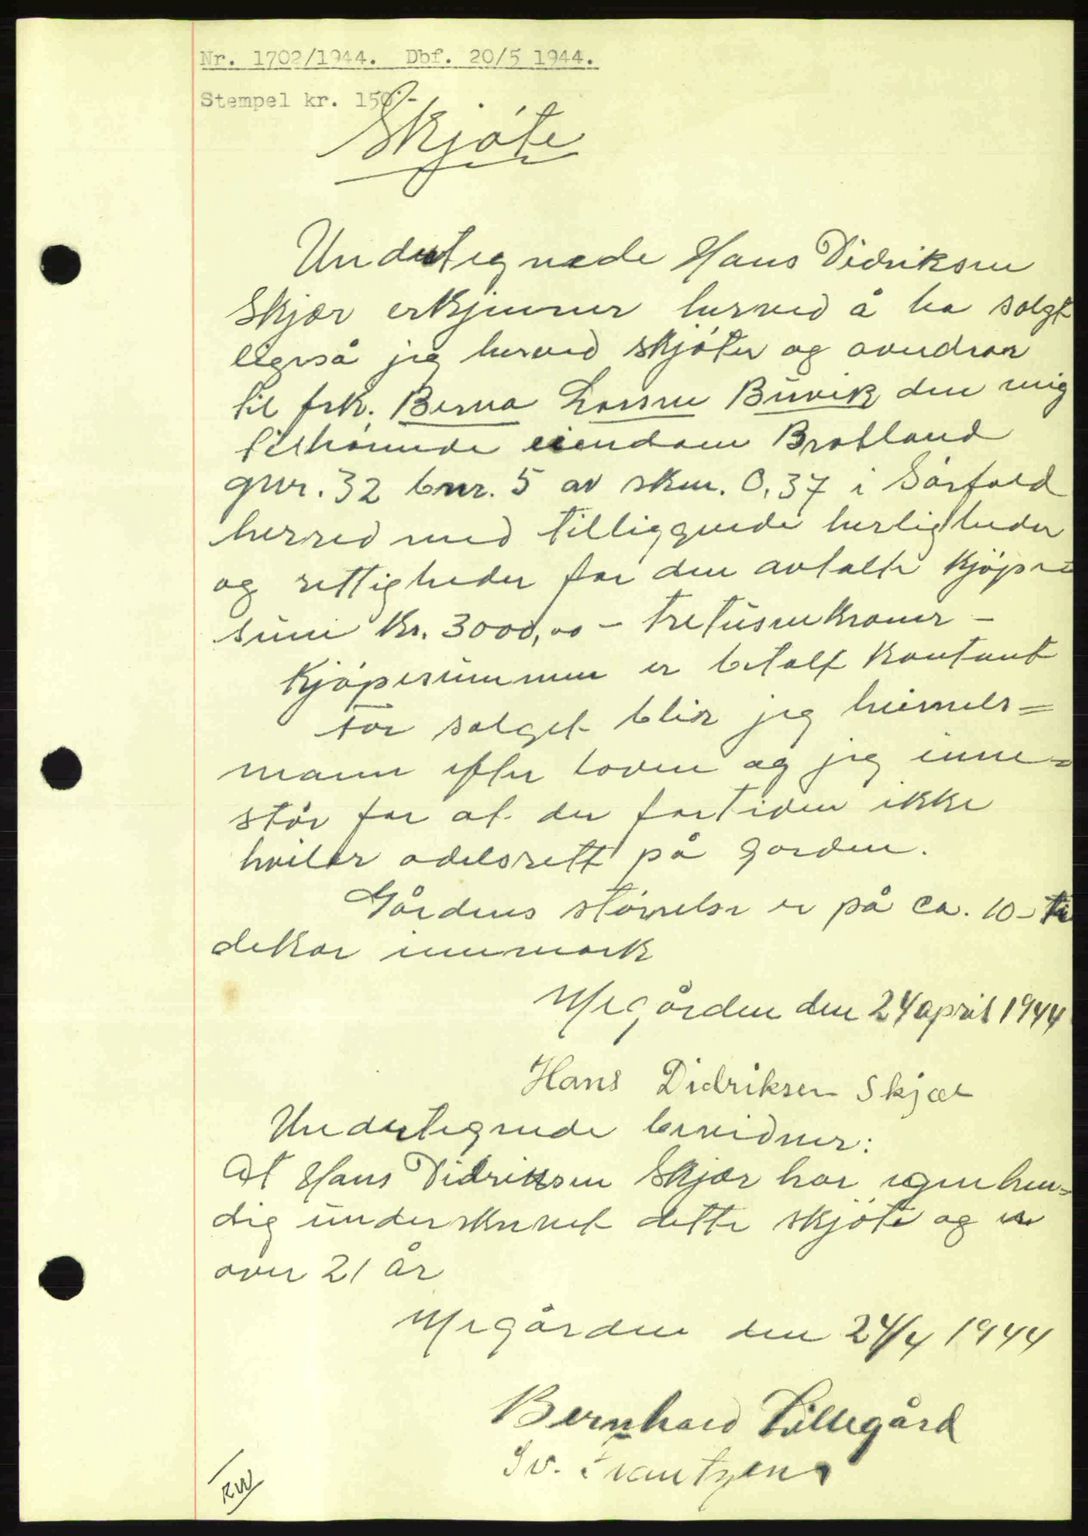 Nr. 1702/1944. Dbf. 20/5 1944.
Stempel kr. 150.-
Skjöte
Undertegnede Hans Didriksen
Skjær erkjenner herved å ha solgt
ligeså jeg herved skjöter og overdrar
til frk. Berna Larsen Buvik den mig
tilhörende eiendom Bratland
gnr. 32 bnr. 5 av skm. 0,37 i Sörfold
herred med tilliggende herligheder
og rettigheder for den avtalte kjöpe=
sum Kr. 3000,00 - tretusenkroner -
Kjöpesummen er betalt kontant
for salget blir jeg heimels=
mann efter loven og jeg inne=
står for at der for tiden ikke
hviler odelsrett på garden.
Gårdens störrelse er på ca. 10 - ti
dekar innmark
Megården den 24 april 1944
Hans Didriksen Skjær
Undertegnede bevidner:
At Hans Didriksen Skjær har egenhen=
dig underskrevet dette skjöte og er
over 21 år
Megården den 24/4 1944
Bernhard Lillegård
Sv. Frantzen
RW